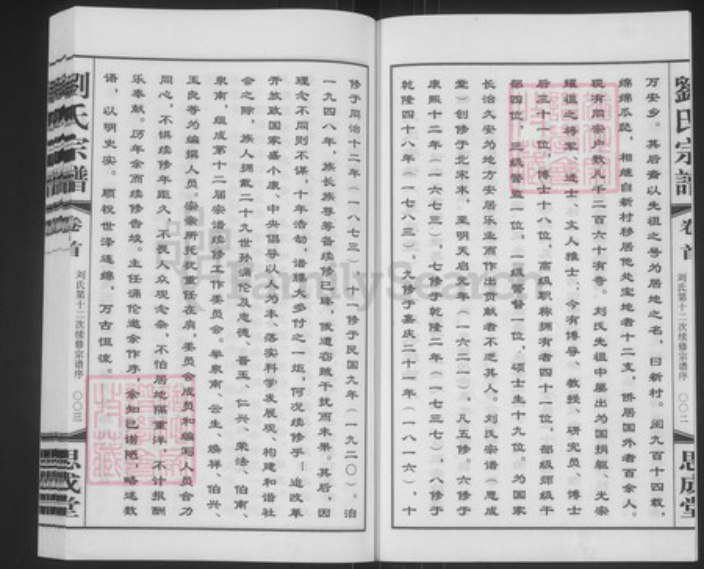 劉氏宗譜
卷首
刘氏第十二次续修宗谱序
〇〇二
思成堂
万安乡。其后裔以先祖之号为居地之名，曰新村。阅九百十四载，
绵绵瓜瓞，相继自新村移居他处宝地者十二支，侨居国外者百余人。
现有同宗户数八千二百六十有奇。刘氏先祖中屡出为国捐躯、光宗
耀祖之将军、进士、文人雅士；今有博导、教授、研究员、博士
后三十一位，博士十八位，高级职称拥有者四十一位，部级师级干
部四位，三级警监一位，一级警督一位，硕士生十九位。为国家
长治久安为地方安居乐业而作出贡献者不乏其人。刘氏宗谱（思成
堂）创修于北宋末，至明天启元年（一六二一），凡五修。六修于
康熙十二年（一六七三），七修于乾隆二年（一七三七），八修于
乾隆四十八年（一七八三），九修于嘉庆二十一年（一八一六），十
修于同治十二年（一八七三），十一修于民国九年（一九二〇）。洎
一九四八年，族长族尊筹备续修已臻，俄遭窃贼干扰而未果。其后，因
理念不同则不谋，十年浩劫，谱牒大多付之一炬，何况续修乎！迨改革
开放政国家盛小康、中央倡导以人为本、落实科学发展观、构建和谐社
会之际，族人拥戴二十九世孙涌伦及忠德、晋玉、仁兴、荣法、伯南、
泉南，组成第十二届宗谱续修工作委员会。举泉南、云生、焕祥、伯兴、
玉良等为编撰人员。宗亲所托祝重任在肩，委员会成员和编写人员合力
同心，不惧续修年距久，不畏人众观念杂，不怕居地隔重洋，不计报酬
乐奉献。历年余而续修告竣。主任涌伦邀余作序，余知已谢陋，略述数
语，以明史实。顺祝世泽连绵，万古恒流。
劉氏宗譜
卷首
刘氏第十二次续修宗谱序
〇〇三
思成堂
FamilySearch